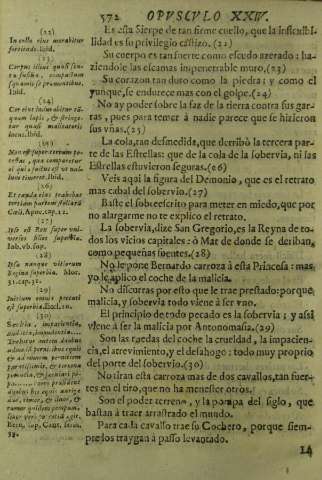 572 OPUSCULO XXIV.
Es esta Sierpe de tan fiero cuello, que la
lidad es su privilegio castizo.(22)
Su cuerpo es tan fuerte como escudo azerado: ha-
ziendole las escamas impenetrable muro.(23)
Su corazon tan duro como la piedra: y como el
yunque, se endurece mas con el golpe.(24)
No ay poder sobre la faz de la tierra contra sus gar-
ras, pues para temer à nadie parece que se hizieron
sus vñas.(25)
La cola, tan desmedida, que derribò la tercera par-
te de las Estrellas: que de la cola de la sobervia, ni las
Estrellas estuvieron seguras.(26)
Veis aqui la figura del Demonio, que es el retrato
mas cabal del sobervio.(27)
Baste el sobreescrito para meter en miedo, que por
no alargarme no te explico el retrato.
La sobervia, dize San Gregorio, es la Reyna de to-
dos los vicios capitales: ò Mar de donde se deriban,
como pequeñas fuentes.(28)
No le pone Bernardo carroza à esta Princesa: mas
yo le aplico el coche de la malicia.
No discurras por esto que le trae prestado: porque
malicia, y sobervia todo viene à ser vno.
El principio de todo pecado es la sobervia; y assi
viene à ser la malicia por Antonomasia.(29)
Son las ruedas del coche la crueldad, la impacien-
cia, el atrevimiento, y el desahogo: todo muy proprio
del porte del sobervio.(30)
No tiran esta carroza mas de dos cavallos, tan fuer-
tes en el tiro, que no ha menester otros.
Son el poder terreno, y la pompa del siglo, que
bastan à traer arrastrado el mundo.
Para cada cavallo trae su Cochero, porque siem-
pre los traygan à passo levantado.
(22)
In collo eius morabitur
fortitudo. Ibid.
(23)
Corpus illius quasi scu-
ta fusilia, compactum
squamis se prementibus.
Ibid.
(24)
Cor eius indurabitur tã-
quam lapis, & stringe-
tur quasi malleatoris
incus. Ibid.
(25)
Non est super terram po-
testas, quæ comparetur
ei qui factus est vt nul-
lum timeret. Ibid.
(26)
Et cauda eius trahebat
tertiam partem stellarũ
Cæli. Apoc. cap. 12.
(27)
Ipse est Rex super vni-
versos filios superbiæ.
Iob. vb. sup.
(28)
Ipsa namque vitiorum
Regina superbia.
31. cap. 32.
(29)
Initium omnis peccati
est superbia. Eccl. 10.
(30)
Sævitia, impatientia,
audacia, impudentia.